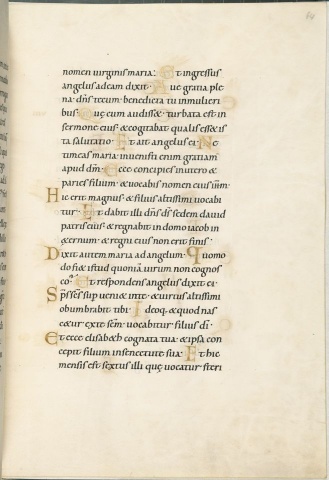 nomen uirginis maria: Et ingressus
angelus ad eam dixit· Aue gratia ple
na· dñs tecum· benedicta tu in mulieri
bus· Quę cum audisset· turbata est in
sermone eius· & cogitabat qualis esset is
ta salutatio· Et ait angelus ei· Ne
timeas maria· inuenisti enim gratiam
apud dm̄· Ecce concipies in utero &
paries filium· & uocabis nomen eius iħm·
Hic erit magnus· & filius altissimi uocabi
tur· Et dabit illi dñs ds̄ sedem dauid
patris eius· & regnabit in domo iacob in
&ernum· & regni eius non erit finis·
Dixit autem maria ad angelum· Quomo
do fi& istud quoniā uirum non cognos
co? Et respondens angelus dixit ei·
Sps̄ ses superueni& in te· & uirtus altissimi
obumbrabit tibi· Ideoq· & quod nas
c&ur ex te sc̄m· uocabitur filius dī·
Et ecce elisab&h cognata tua· & ipsa con
cepit filium in senectute sua· Et hic
mensis est sextus illi quę uocatur steri